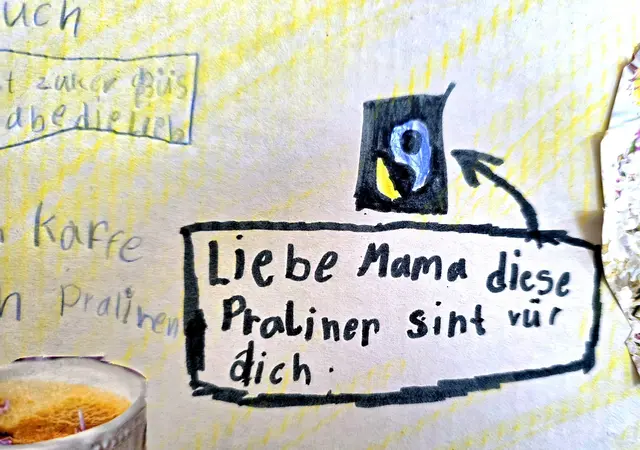 uch
t zuker güs
abe die lieb
n Kaffe
h Pralinen
Liebe Mama diese
Praliner sint vür
dich.